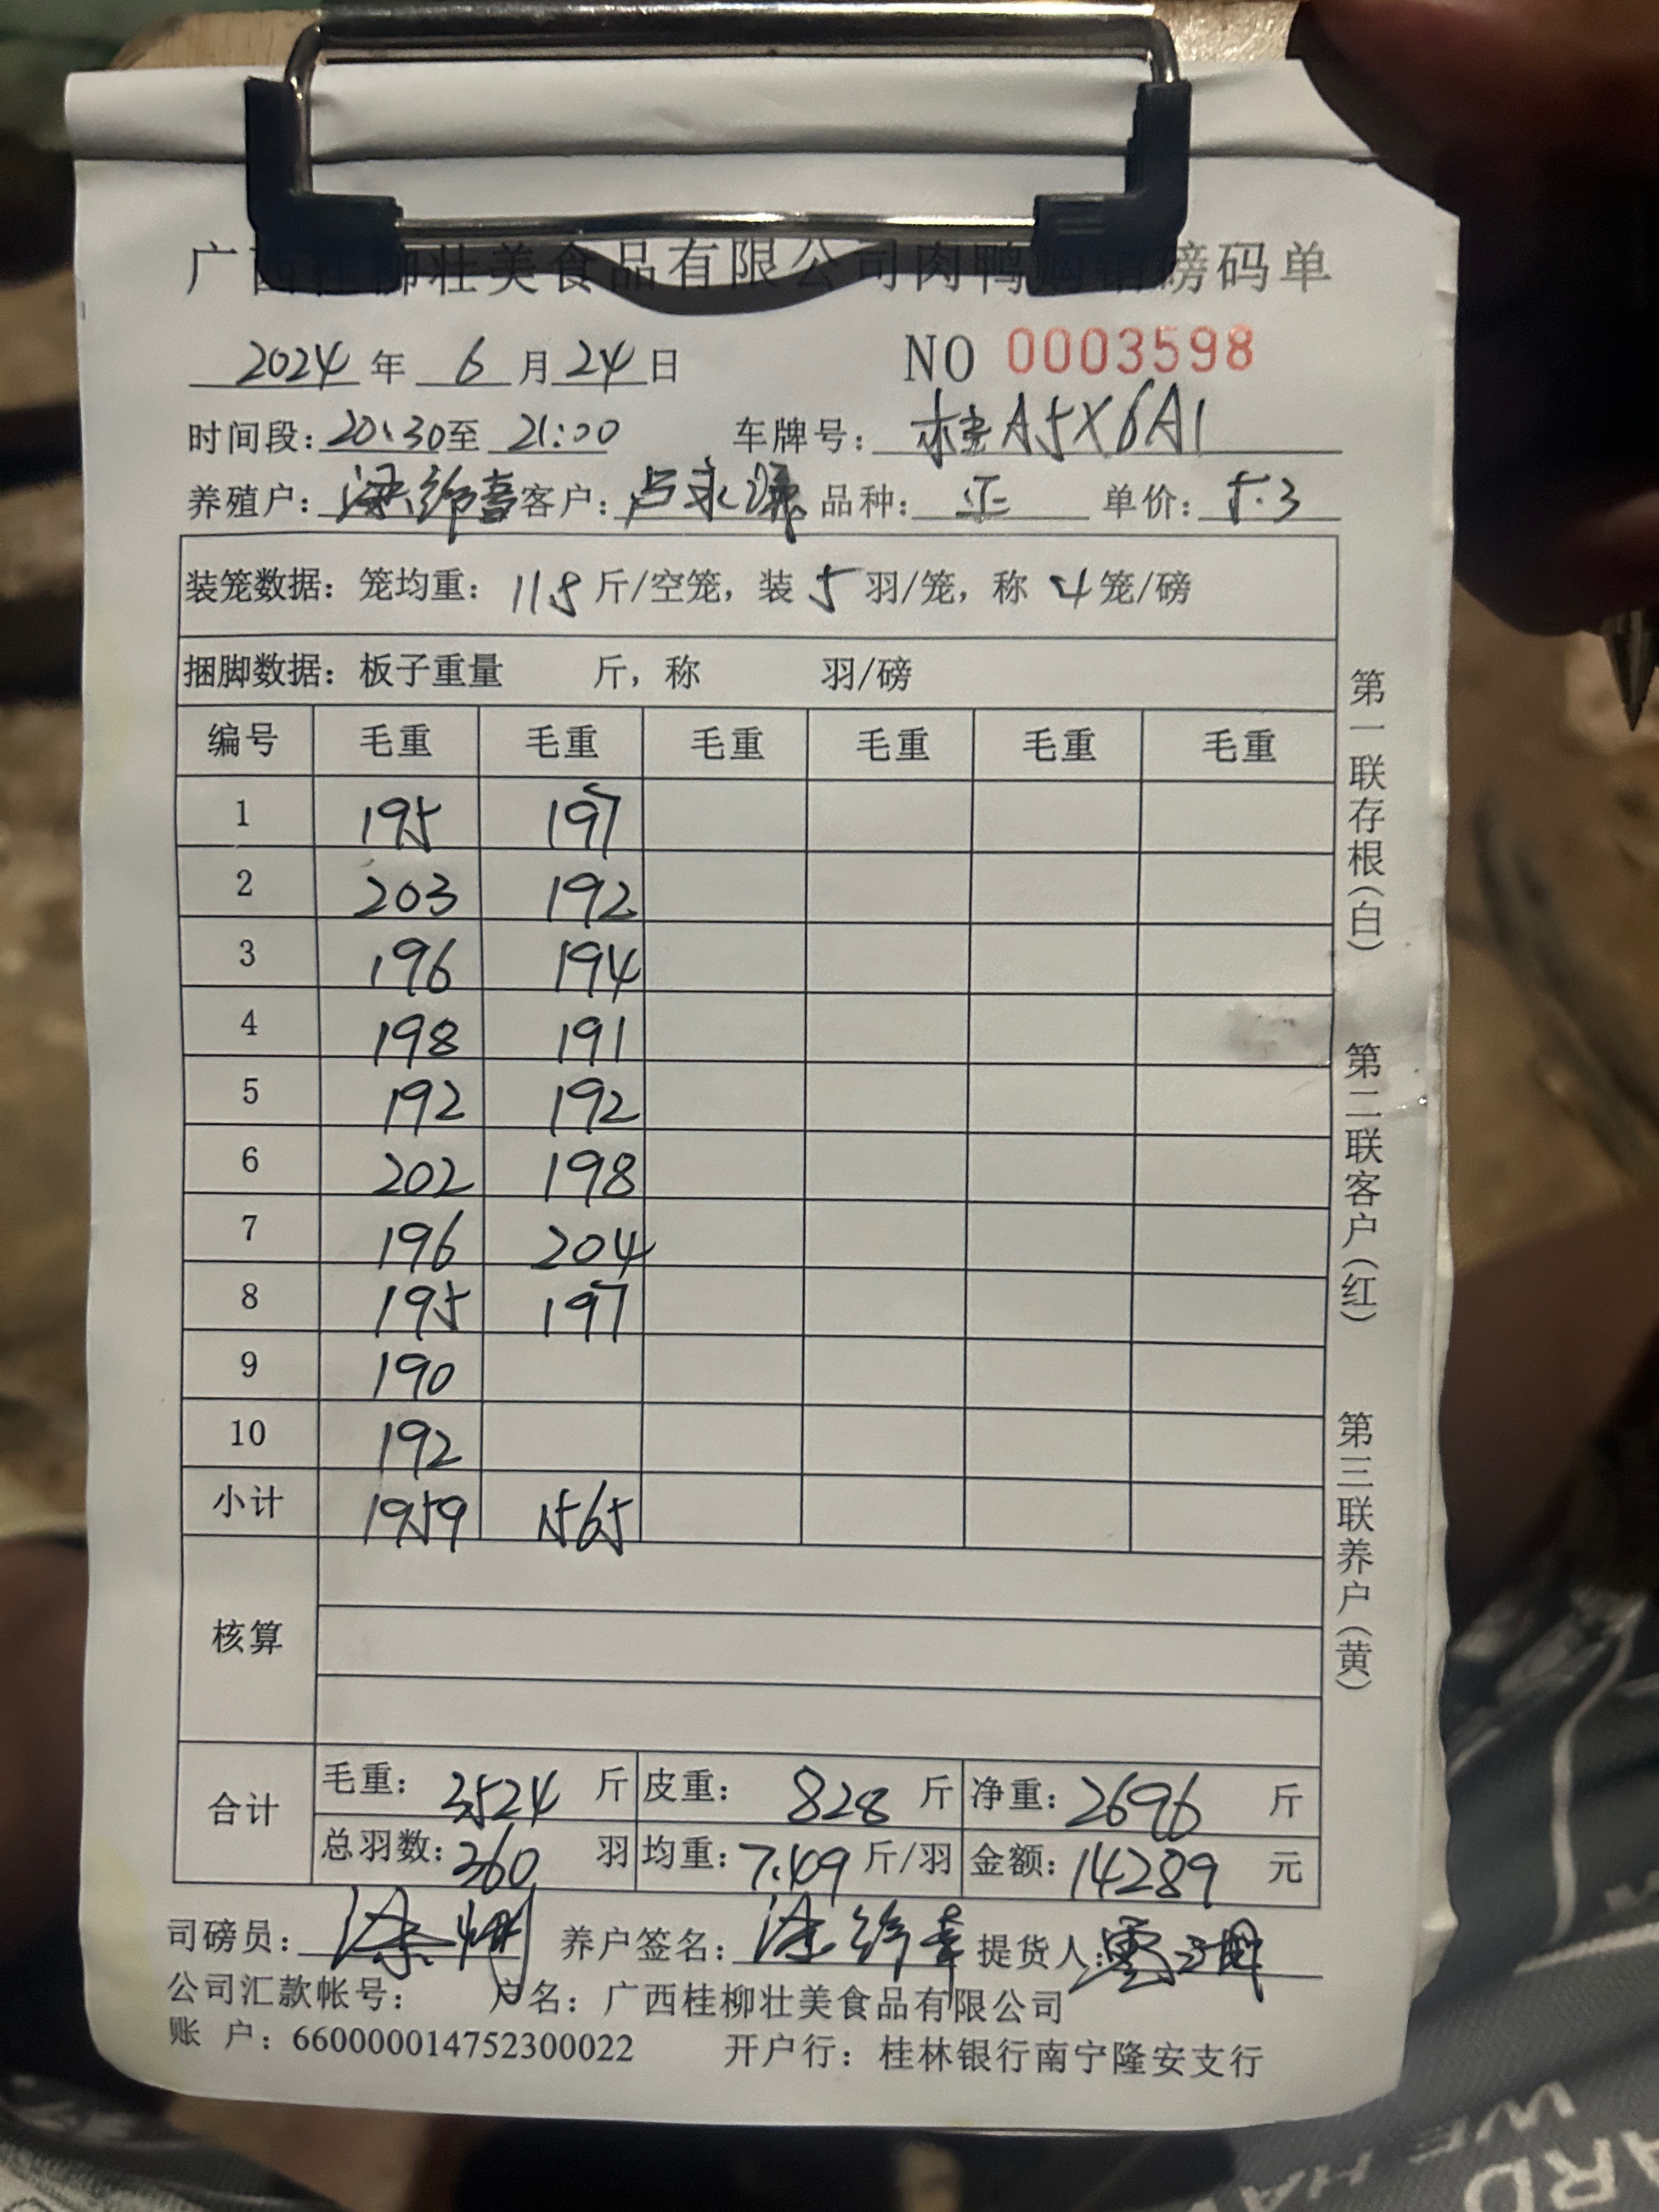 广西桂柳壮美食品有限公司肉鸭购销磅码单
2024 年 6 月 24 日 NO 0003598
时间段: 20:30 至 21:00 车牌号: 桂A5X6A1
养殖户: 客户: 卢永 品种: 正 单价: 5.3
装笼数据: 笼均重: 11.5 斤/空笼, 装 5 羽/笼, 称 4 笼/磅
捆脚数据: 板子重量 斤, 称 羽/磅
编号 毛重 毛重 毛重 毛重 毛重 毛重
1 195 197
2 203 192
3 196 194
4 198 191
5 192 192
6 202 198
7 196 204
8 195 197
9 190
10 192
小计 1959 1565
核算
合计 毛重: 3524 斤 皮重: 828 斤 净重: 2696 斤
总羽数: 360 羽 均重: 7.49 斤/羽 金额: 14289 元
司磅员: 养户签名: 提货人:
公司汇款帐号: 户名: 广西桂柳壮美食品有限公司
账 户: 660000014752300022 开户行: 桂林银行南宁隆安支行
第一联存根(白)
第二联客户(红)
第三联养户(黄)
ARD
WE HA